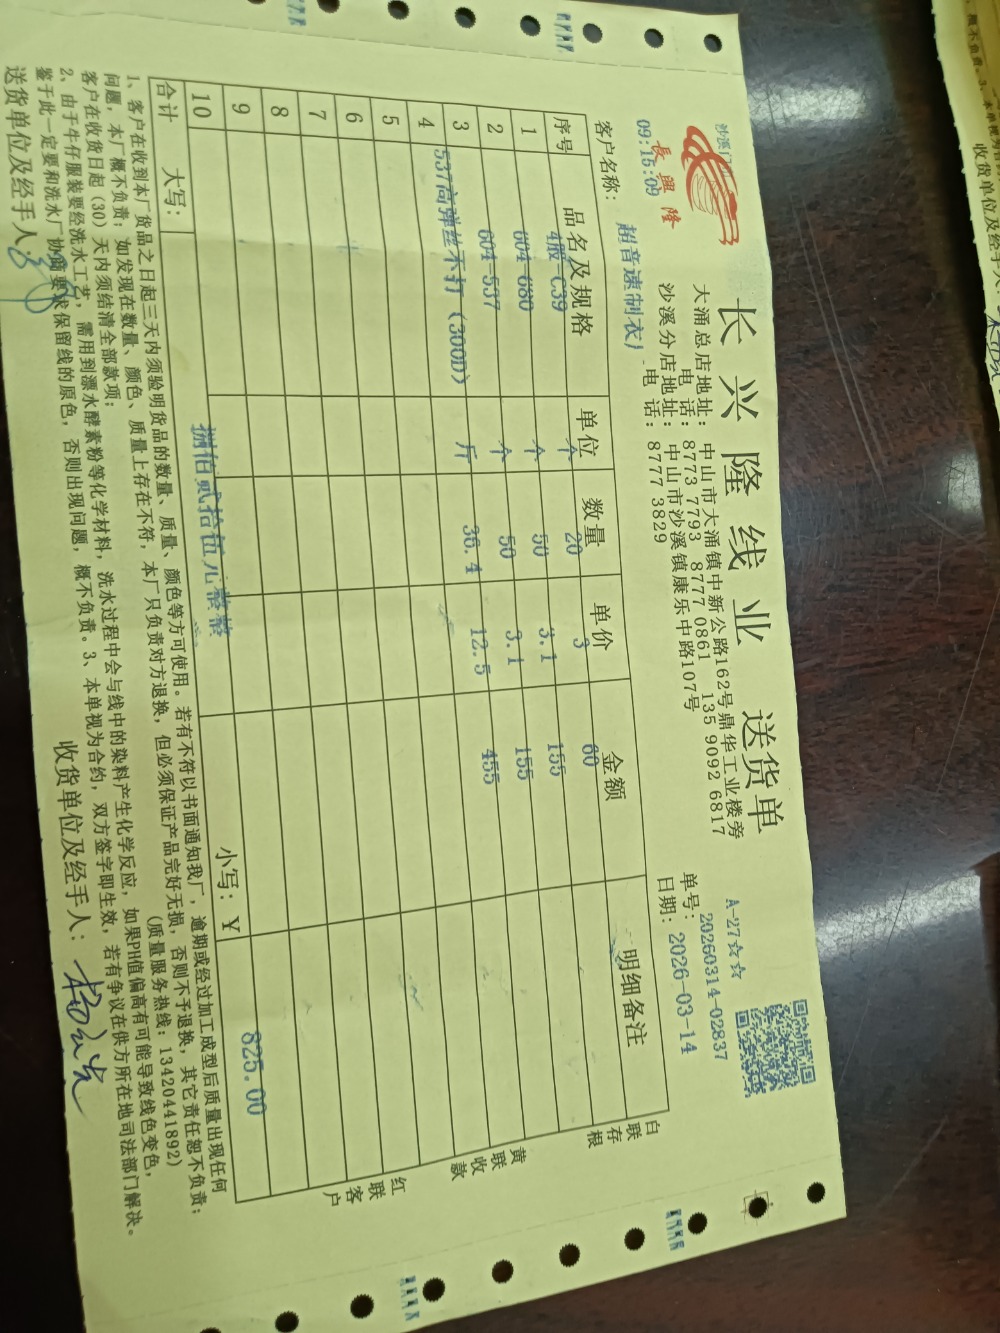 长兴隆线业 送货单
沙溪门
長興隆
09:15:09
大涌总店地址：中山市大涌镇中新公路162号鼎华工业楼旁
电 话：8773 7793 8777 0861 135 9092 6817
沙溪分店地址：中山市沙溪镇康乐中路107号
电 话：8777 3829
A-27☆☆
单号：20260314-02837
日期：2026-03-14
客户名称：超音速制衣厂
序号 品名及规格 单位 数量 单价 金额 明细备注
1 4股-C39 个 20 3 60
2 604-680 个 50 3.1 155
3 604-537 个 50 3.1 155
4 537高弹丝不打（300D） 斤 36.4 12.5 455
5
6
7
8
9
10
合计 大写：捌佰贰拾伍元整整 小写：¥ 825.00
白联存根
黄联收款
红联客户
1、客户在收到本厂货品之日起三天内须验明货品的数量、质量、颜色等方可使用。若有不符以书面通知我厂，逾期或经过加工成型后质量出现任何
问题，本厂概不负责；如发现在数量、颜色、质量上存在不符，本厂只负责对方退换，但必须保证产品完好无损，否则不予退换，其它责任恕不负责；
客户在收货日起（30）天内须结清全部款项； （质量服务热线：13420441892）
2、由于牛仔服装要经洗水工艺，需用到漂水酵素粉等化学材料，洗水过程中会与线中的染料产生化学反应，如果PH值偏高有可能导致线色变色，
鉴于此一定要和洗水厂协商要求保留线的原色，否则出现问题，概不负责。3、本单视为合约，双方签字即生效，若有争议在供方所在地司法部门解决。
送货单位及经手人： 收货单位及经手人：
收货单位及经手人：